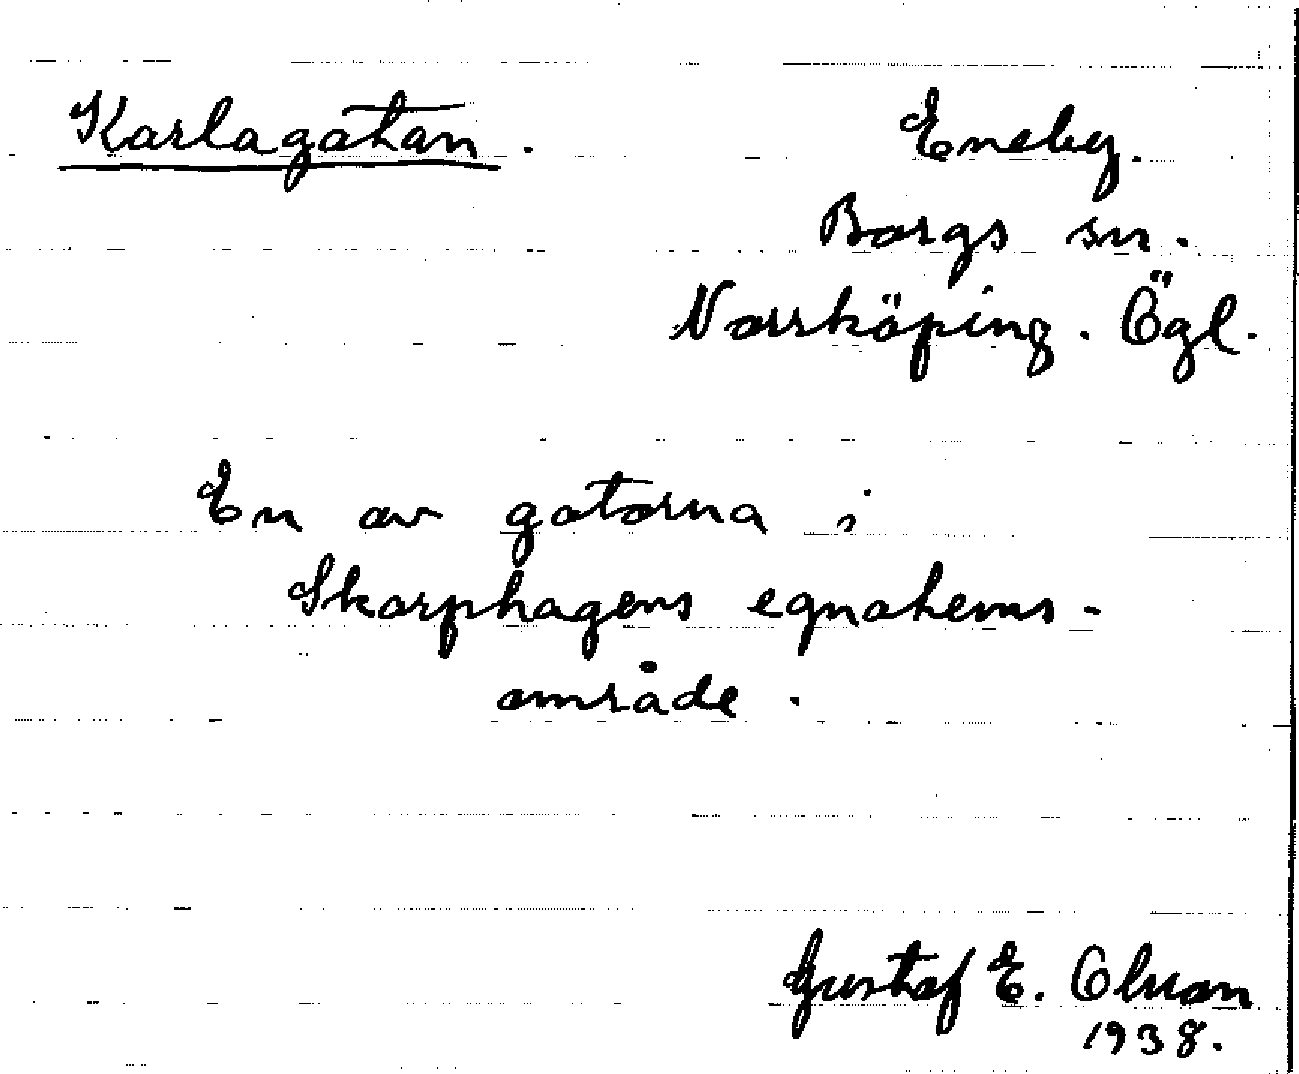 Karlagatan.
Eneby.
Borgs sn.
Norrköping. Ögl.
En av gatorna i
Skarphagens egnahems-
område.
Gustaf E. Olsson
1938.